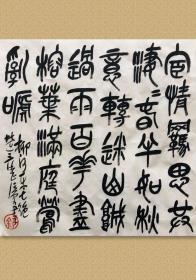 宦情羈思共
淒〻春半如秋
意轉迷山城
過雨百花盡
榕葉滿庭鶯
亂啼